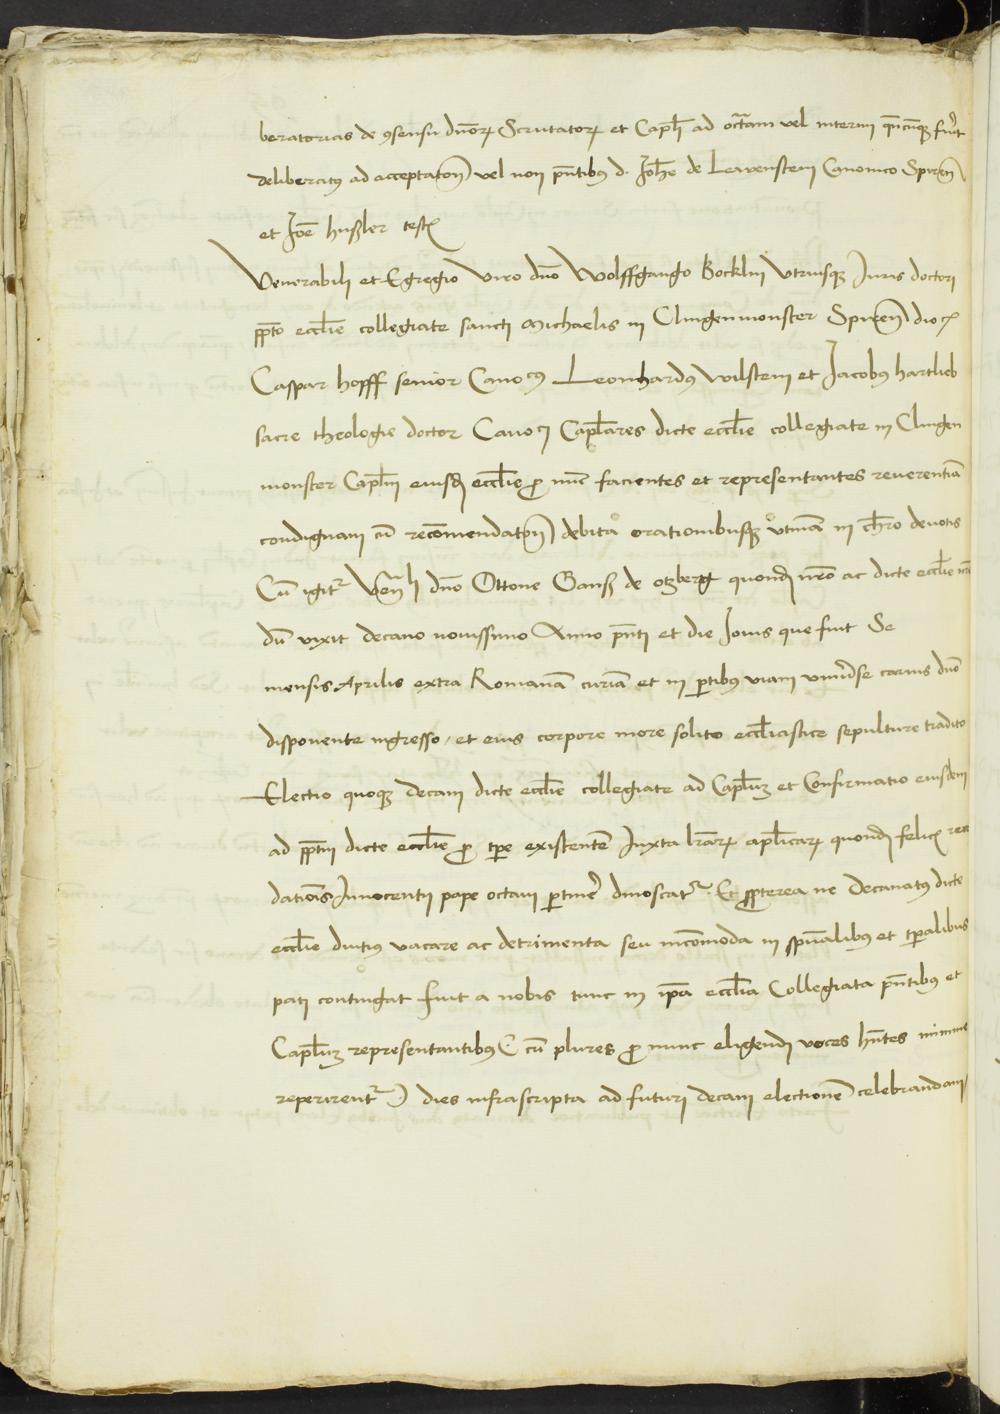 beratorias de ꝯsensu dn̄oꝝ Scrutatoꝝ et Capl̄i ad octauam vel interim qn̄cunqꝫ fuit
deliberatꝰ ad acceptatōn̄ vel non pn̄tibꝰ d. Joh̄e de Lewenstein Canonico Spiren̄
et Joē husler testꝭ
Venerabili et Egregio viro dn̄o Wolffgango Bocklin Vtriusqꝫ Juris doctori
ppto eccl̄ie collegiate sancti Michaelis in Clingenmonster Spiren̄ diocꝭ
Caspar hopff senior Canocꝰ Leonhardꝰ wilstein et Jacobꝰ hartlieb
sacre theologie doctor Canoci Capl̄ares dicte eccl̄ie collegiate in Clingen
monster Capl̄m eiusdꝫ eccl̄ie ꝓ nūc facientes et representantes reuerentiā
condignam cū recōmendatōn̄ debita orationibusqꝫ vtinā in chr̄o deuotis
Cū igitr Ven̄li dn̄o Ottone Gansz de otzberg quondꝫ nr̄o ac dicte eccl̄ie nr̄e
dū vixit decano nouissimo Anno pn̄ti et die Jouis que fuit Se
mensis Aprilis extra Romanā curiā et in ꝑtibꝰ viam vniu̓se carnis dn̄o
disponente ingresso / et eius corpore more solito eccl̄iastice sepulture tradito
Electio quoqꝫ decani dicte eccl̄ie collegiate ad Capl̄uꝫ et Confirmatio eiusdem
ad ppt̄m dicte eccl̄ie ꝓ tꝑe existentē Juxta lr̄aꝝ apl̄icaꝝ quondꝫ felicꝭ recor
dationis Innocentii pape octaui ꝑtine̓ dinoscatr. Et ꝓpterea ne Decanatꝰ dicte
eccl̄ie diutiꝰ vacare ac detrimenta seu incōmoda in spūalibꝰ et tꝑalibus
pati contingat fuit a nobis tunc in ip̄a eccl̄ia Collegiata pn̄tibꝰ et
Capl̄uꝫ representantibꝰ ( cū plures ꝓ nunc eligendi voces hn̄tes minime
reperirentr ) dies infrascripta ad futuri decani electionē celebrandam